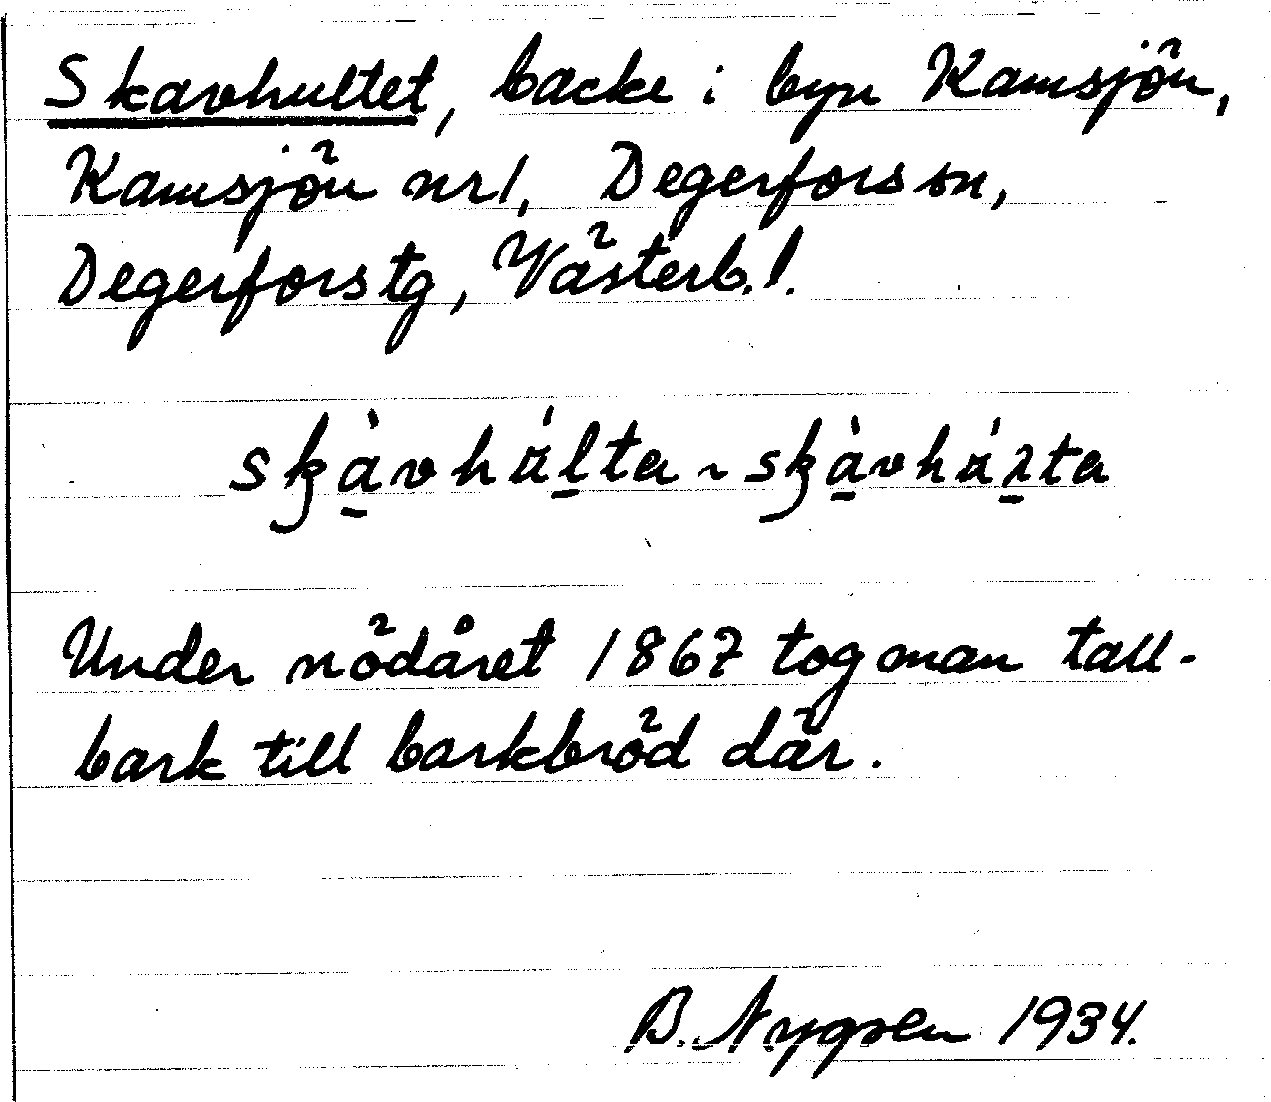 Skavhultet, backe i byn Kamsjön,
Kamsjön nr 1, Degerfors sn,
Degerfors tg, Västerb. l.
Under nödåret 1867 tog man tall-
bark till barkbröd där.
B. Nygren 1934.